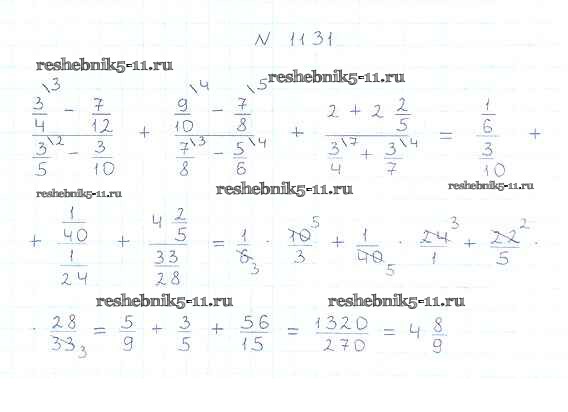 N 1131
reshebnik5-11.ru
reshebnik5-11.ru
\3 \4 \5
3/4 - 7/12 + 9/10 - 7/8 + 2 + 2 2/5 = 1/6 +
3/5\2 - 3/10 7/8\3 - 5/6\4 3/4\7 + 3/7\4 3/10
reshebnik5-11.ru reshebnik5-11.ru reshebnik5-11.ru
+ 1/40 / 1/24 + 4 2/5 / 33/28 = 1/6 3 · 10/3 5 + 1/40 5 · 24/1 3 + 22/5 2 ·
reshebnik5-11.ru reshebnik5-11.ru
· 28/33 3 = 5/9 + 3/5 + 56/15 = 1320/270 = 4 8/9